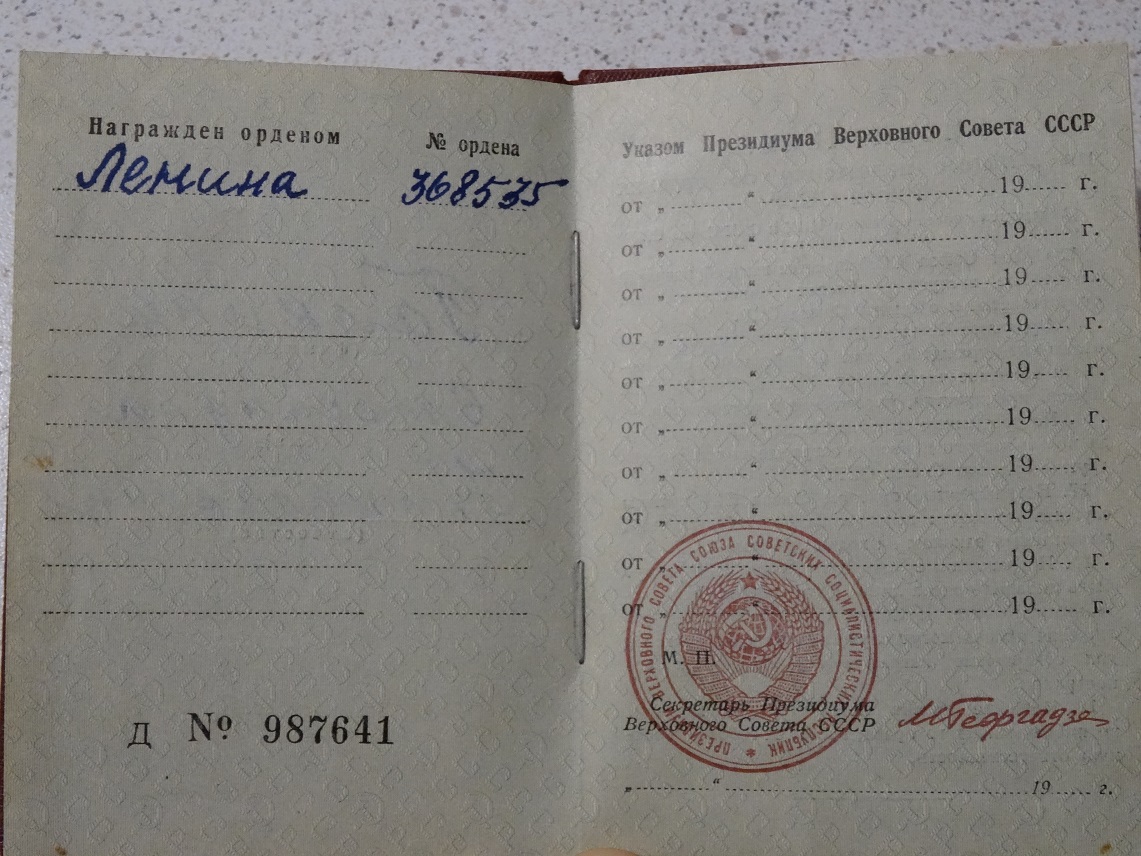 Награжден орденом № ордена
Ленина 368535
Указом Президиума Верховного Совета СССР
от „ “ 19 г.
от „ “ 19 г.
от „ “ 19 г.
от „ “ 19 г.
от „ “ 19 г.
от „ “ 19 г.
от „ “ 19 г.
от „ “ 19 г.
от „ “ 19 г.
от „ “ 19 г.
ПРЕЗИДИУМ ВЕРХОВНОГО СОВЕТА СОЮЗА СОВЕТСКИХ СОЦИАЛИСТИЧЕСКИХ РЕСПУБЛИК
М. П.
Секретарь Президиума
Верховного Совета СССР МГеоргадзе
„ “ 19 г.
Д № 987641